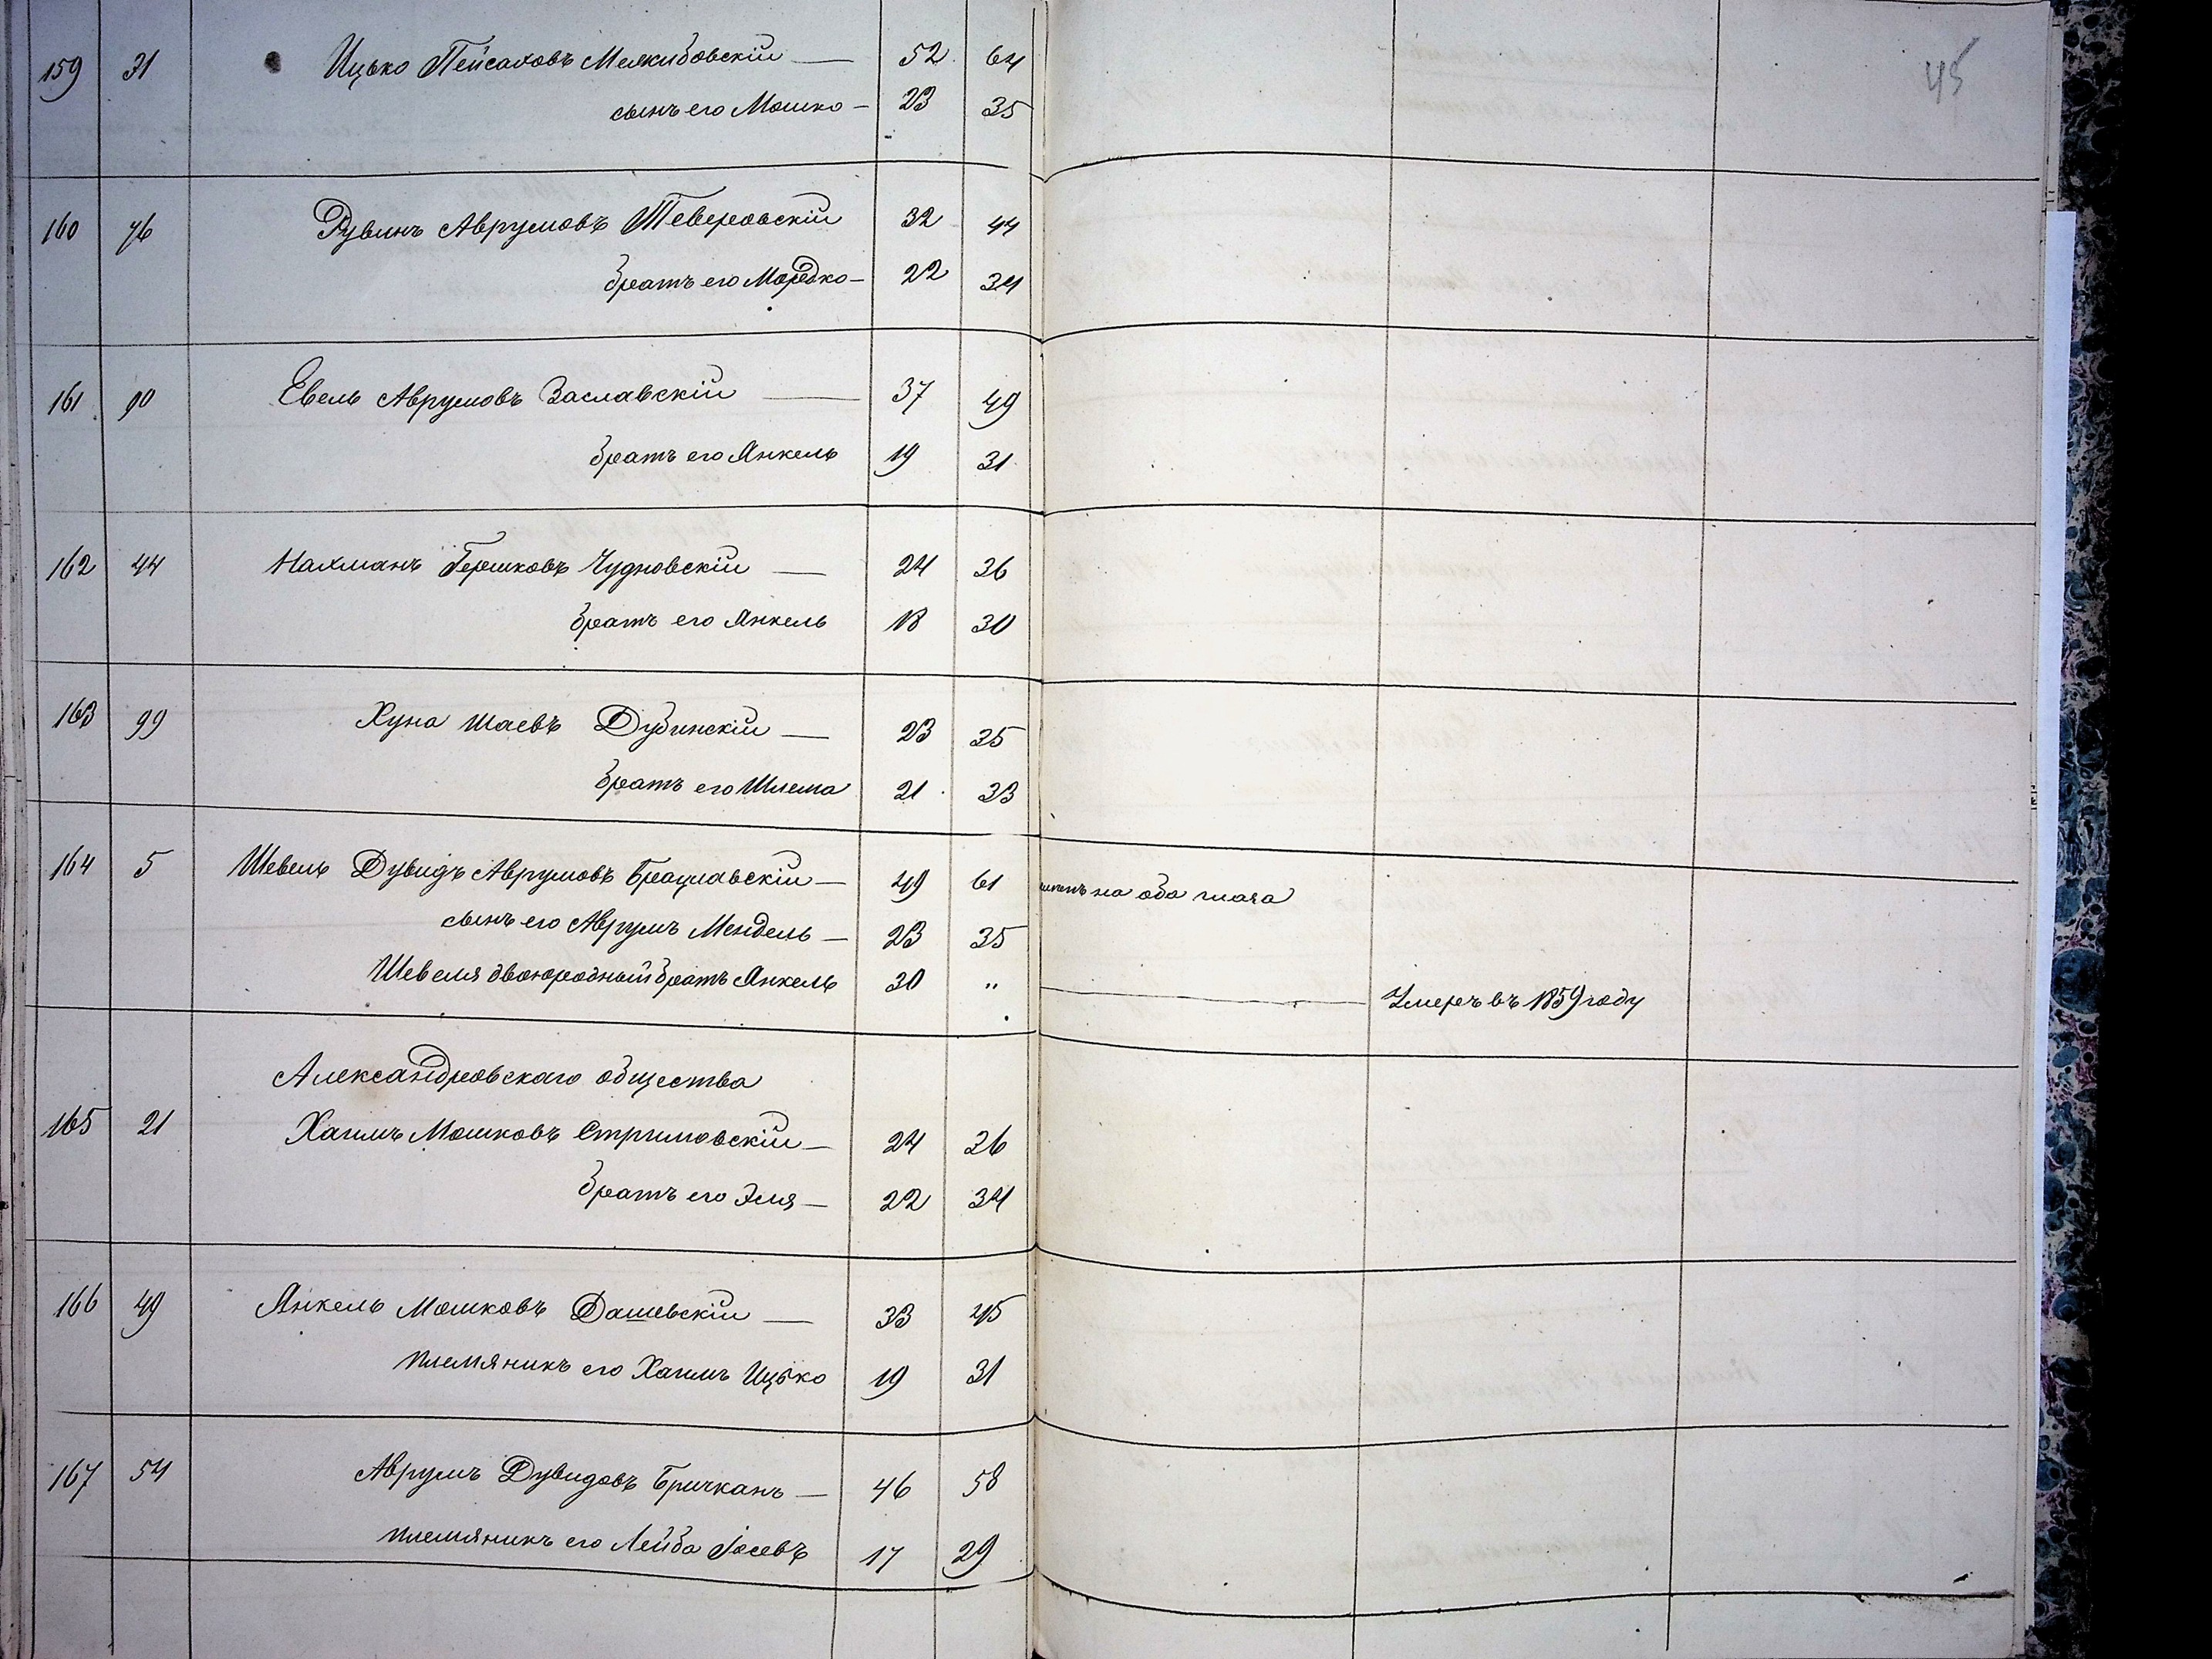 45
159 31 Ицько Пейсаховъ Межибовскій — 52 64
сынъ его Мошко — 23 35
160 76 Рувинъ Аврумовъ Теверовскій 32 44
братъ его Мордко — 22 34
161 90 Евель Аврумовъ Заславскій — 37 49
братъ его Янкель 19 31
162 44 Нахманъ Гершковъ Чудновскій — 24 36
братъ его Янкель 18 30
163 99 Хуна Шаевъ Дубинскій — 23 35
братъ его Шлема 21 33
164 5 Шевель Дувидъ Аврумовъ Брацлавскій — 49 61 на оба глаза
сынъ его Аврумъ Мендель — 23 35
Шевеля двоюродный братъ Янкель 30 „ — Умеръ въ 1859 году
Александровскаго общества
165 21 Хаимъ Мошковъ Стримовскій — 24 36
братъ его Эля — 22 34
166 49 Янкель Мошковъ Дашевскій — 33 45
племяникъ его Хаимъ Ицько 19 31
167 54 Аврумъ Дувидовъ Бричканъ — 46 58
племяникъ его Лейба Іосевъ 17 29